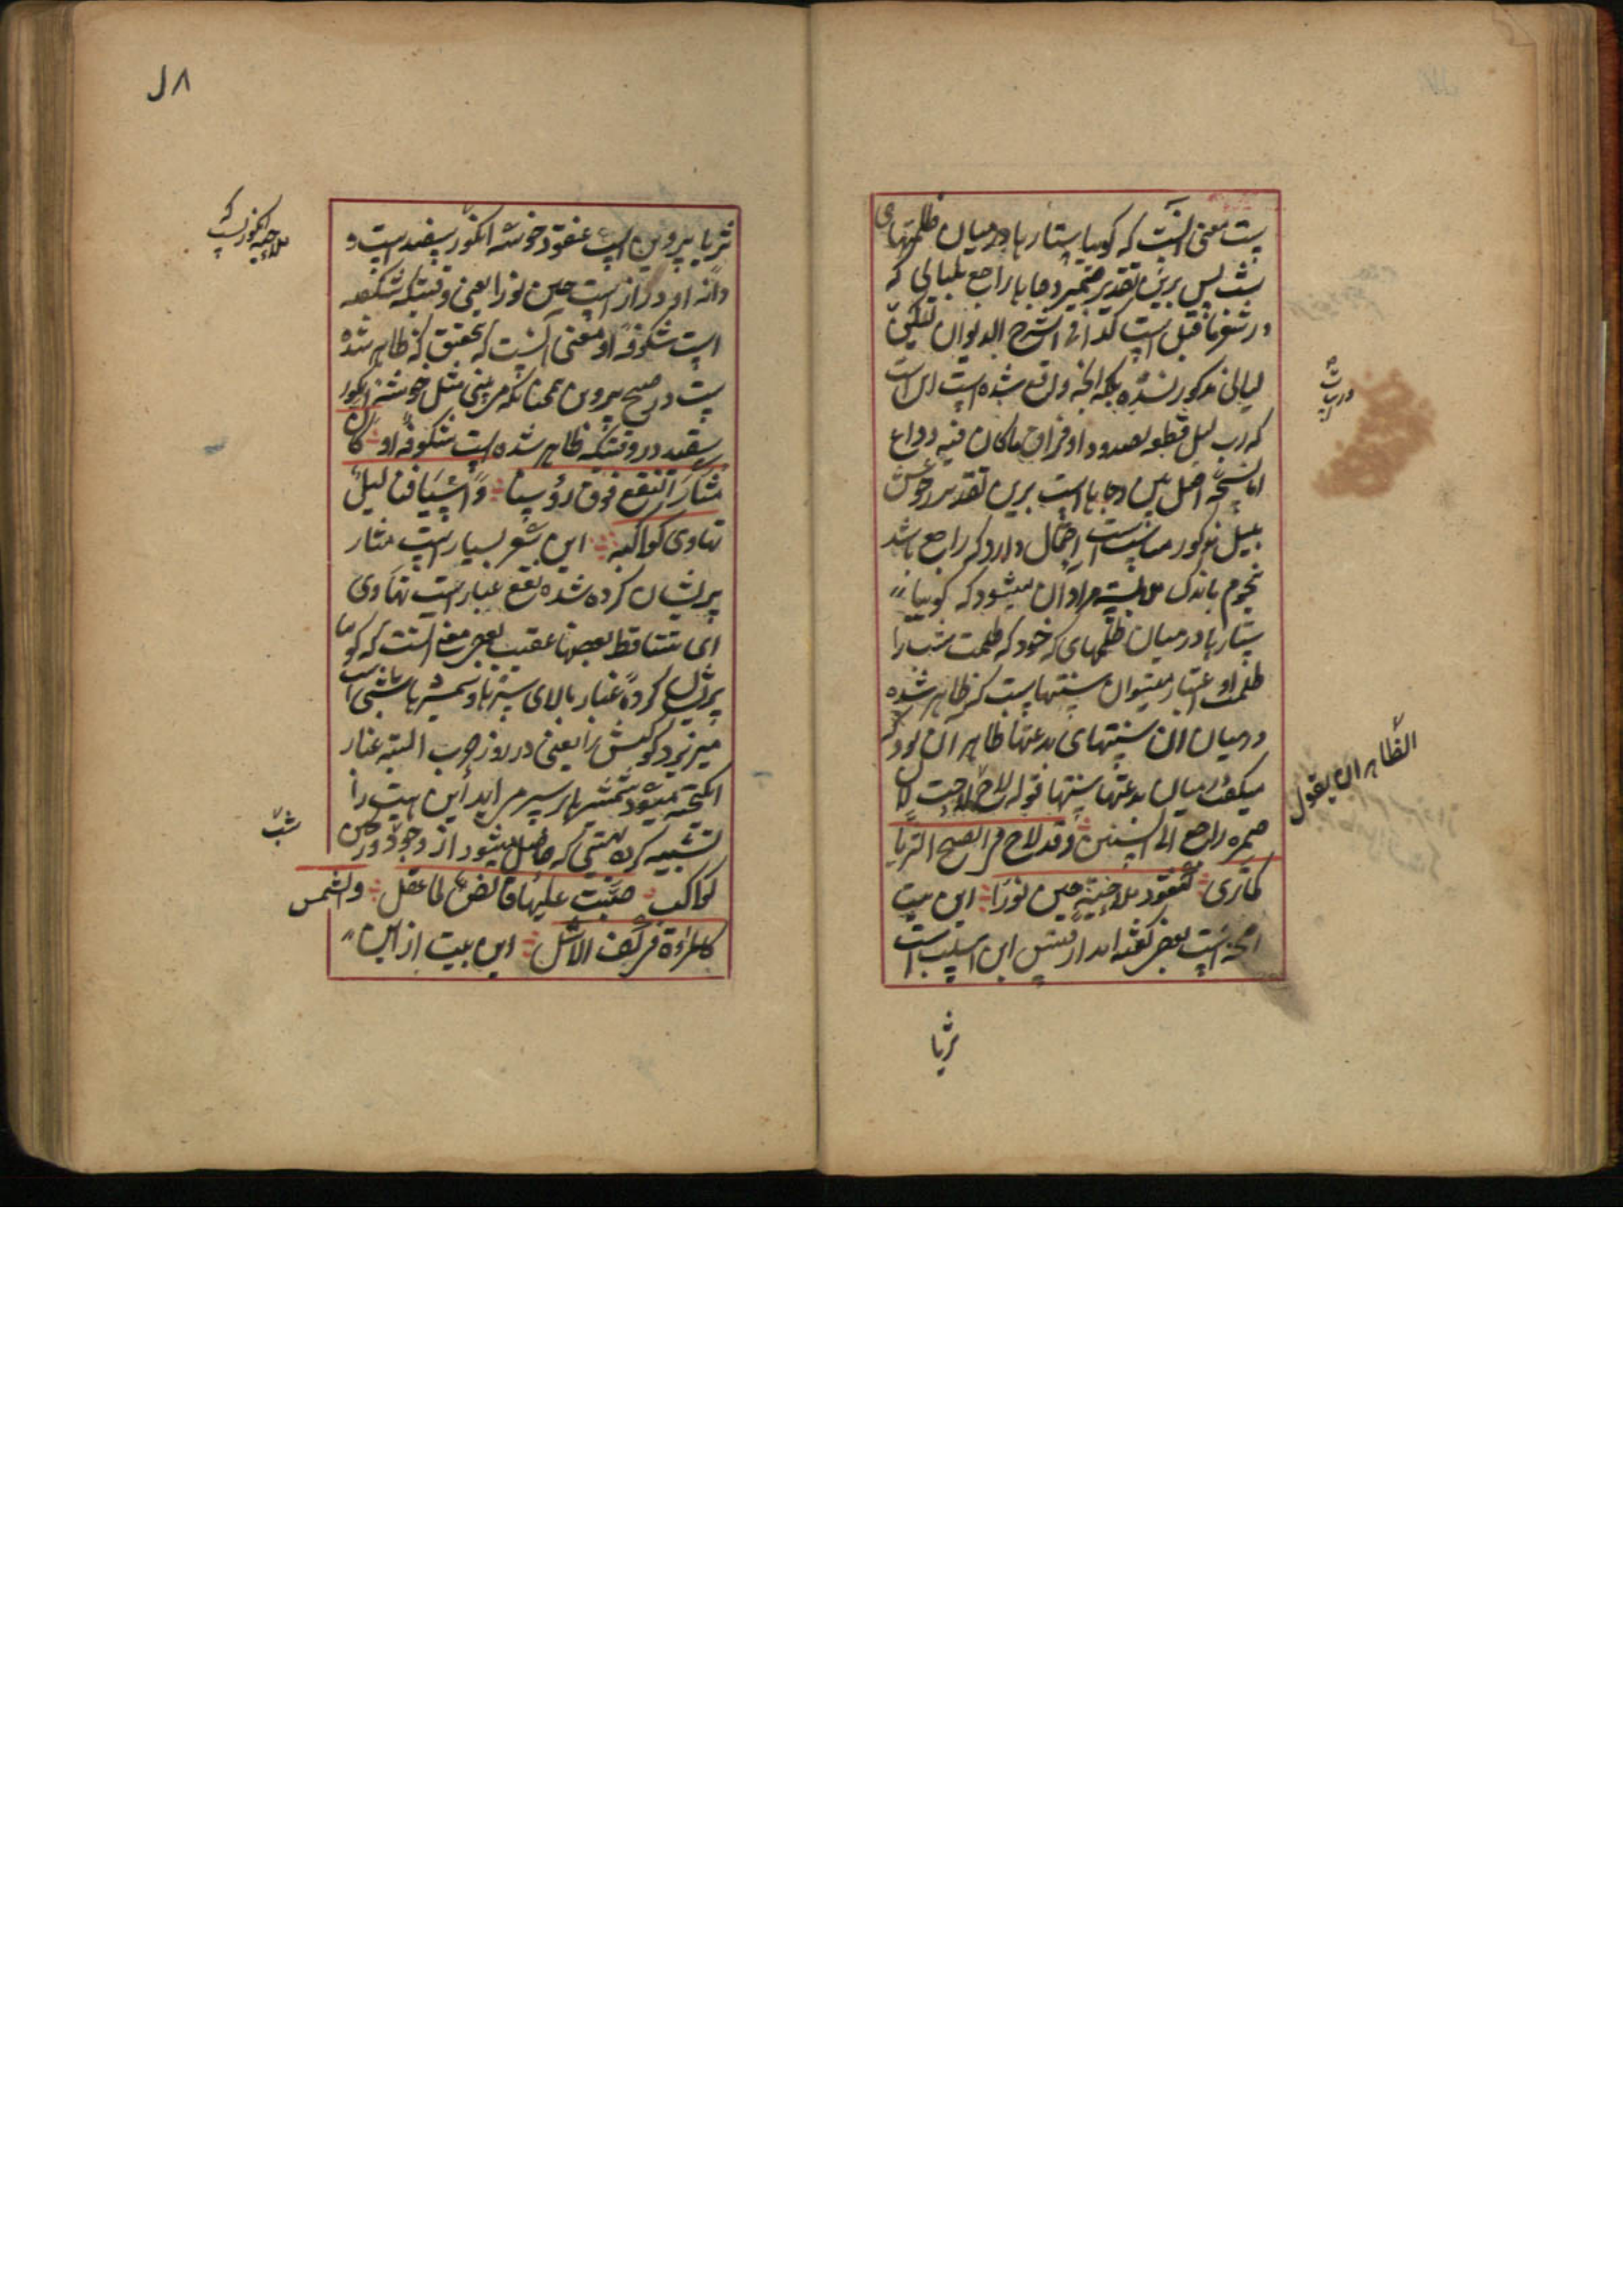 ست معنی آنست که گویا ستارها در میان ظلمتهای
شب پس برین تقدیر ضمیر دجاها راجع بلیالی که
در شعر ماقبل است کذا فی الشرح الدیوان لیکن
لیالی مذکور نشده بلکه آنچه واقع شده است این است
که رب لیل قطعه بصدود او فراق ماکان فیه وداع
اما نسخه اصل بین دجاها است برین تقدیر رجوعش
بلیل مذکور مناسبست احتمال دارد که راجع باشد
نجوم باندک ملابسته مراد آن میشود که گویا
ستارها در میان ظلمتهای که خود که ظلمت شب را
ظلمت او اعتبار میتوان سنتهاست که ظاهر شده
در میان آن سنتهای بدعتها ظاهر آن بود که
میگفت در میان بدعتها سنتها قوله لاح لاحت لان
ضمیره راجع الی السنن وقد لاح فی الصبح الثریا
کما تری کعنقود ملاحیة حین نورا این بیت
احیحه است بعضی گفته اند از قیس ابن اسلت است
ثریا
درب
الظاهر ان یقول
۸ل
ثریا پروین است عنقود خوشه انگور سفید است و
دانه او دراز است حین نورا یعنی وقتیکه شگفته
است شکوفه او معنی آنست که بتحقیق که ظاهر شده
ست در صبح پروین همچنانکه می بینی مثل خوشه انگور
سفید در وقتیکه ظاهر شده است شکوفه او کان
مثار النقع فوق رؤسنا واسیافنا لیل
تهاوی کواکبه این شعر بسیار است مثار
پریشان کرده شده نقع غبار است تهاوی
ای تتساقط بعضها عقیب بعض معنی آنست که گویا
پریشان کرده غبار بالای سرها و شمشیرها شبی است
میریزد کواکبش را یعنی در روز حرب البته غبار
انگیخته میشود شمشیرها بر سپر می آید این هیئت را
تشبیه کرده بهیئتی که حاصل میشود از وجود در حین
کواکب صببت علیها فائض لما عقل والشمس
کالمرآة فی کف الاشل این بیت از این
ملاحیه انگوریست که
شب